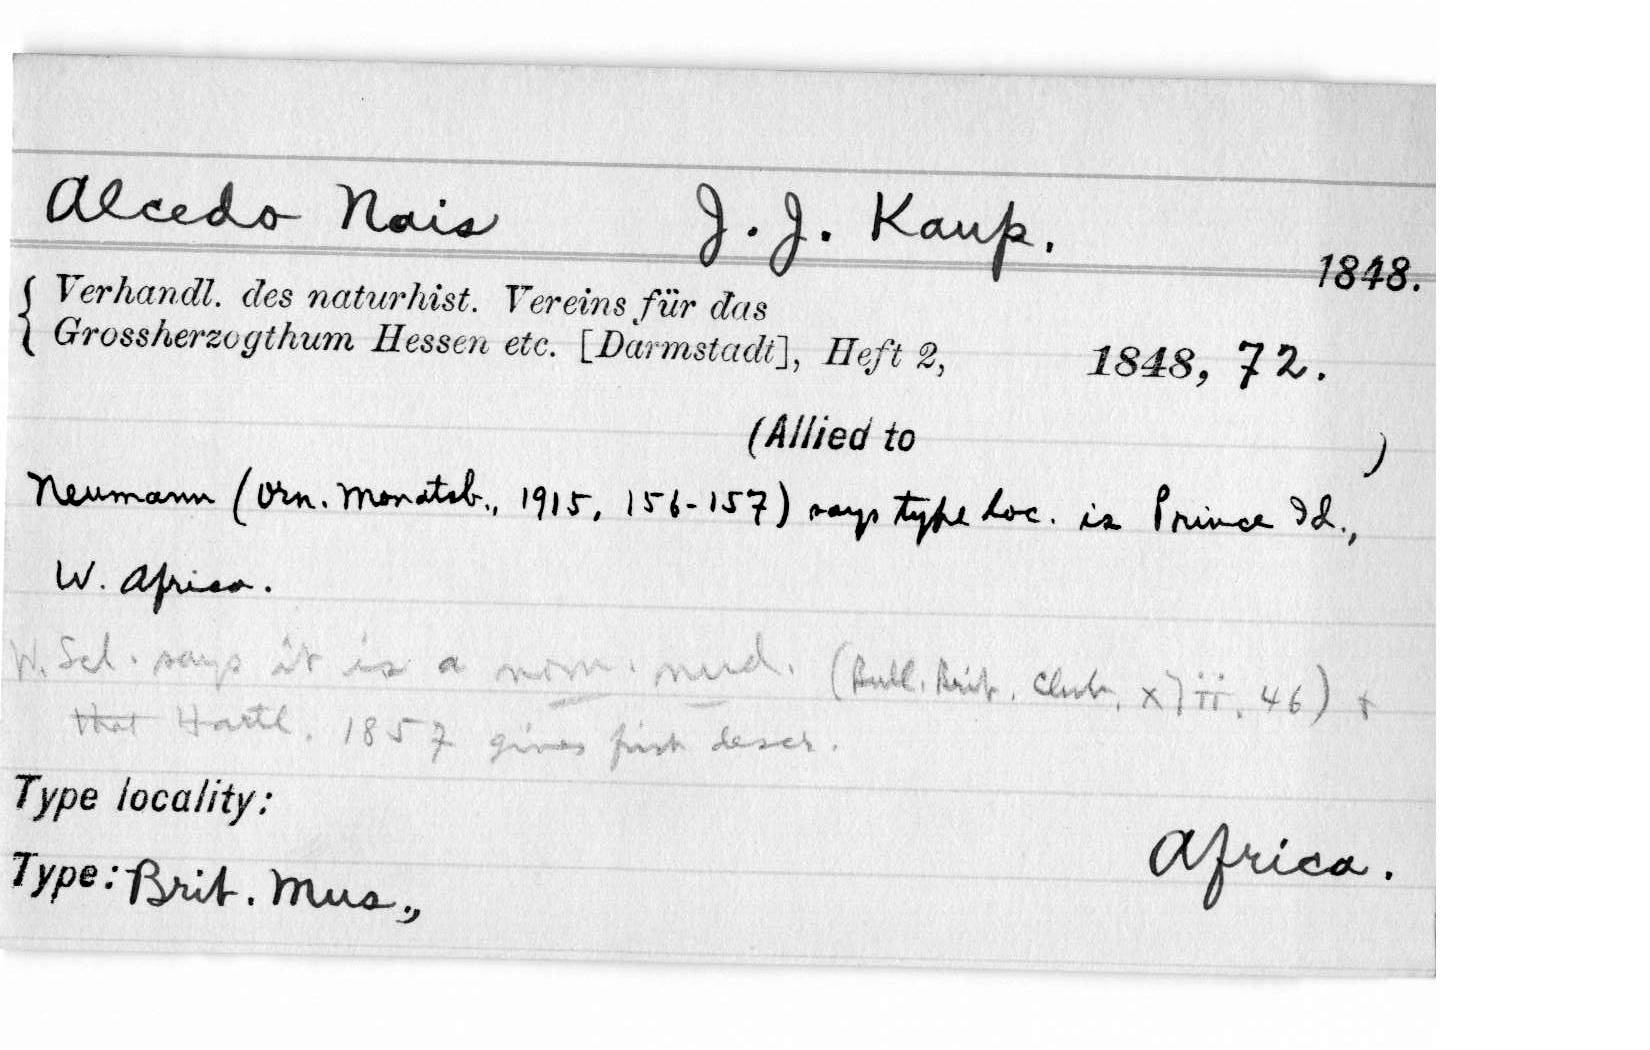 Alcedo Nais J. J. Kaup.
1848.
{ Verhandl. des naturhist. Vereins für das
Grossherzogthum Hessen etc. [Darmstadt], Heft 2, 1848, 72.
(Allied to )
Neumann (Orn. Monatsb., 1915, 156-157) says type loc. is Prince Id.,
W. Africa.
W. Scl. says it is a nom. nud. (Bull. Brit. Club, 46) +
that Hartl. 1857 gives first descr.
Type locality:
Africa.
Type: Brit. Mus.,